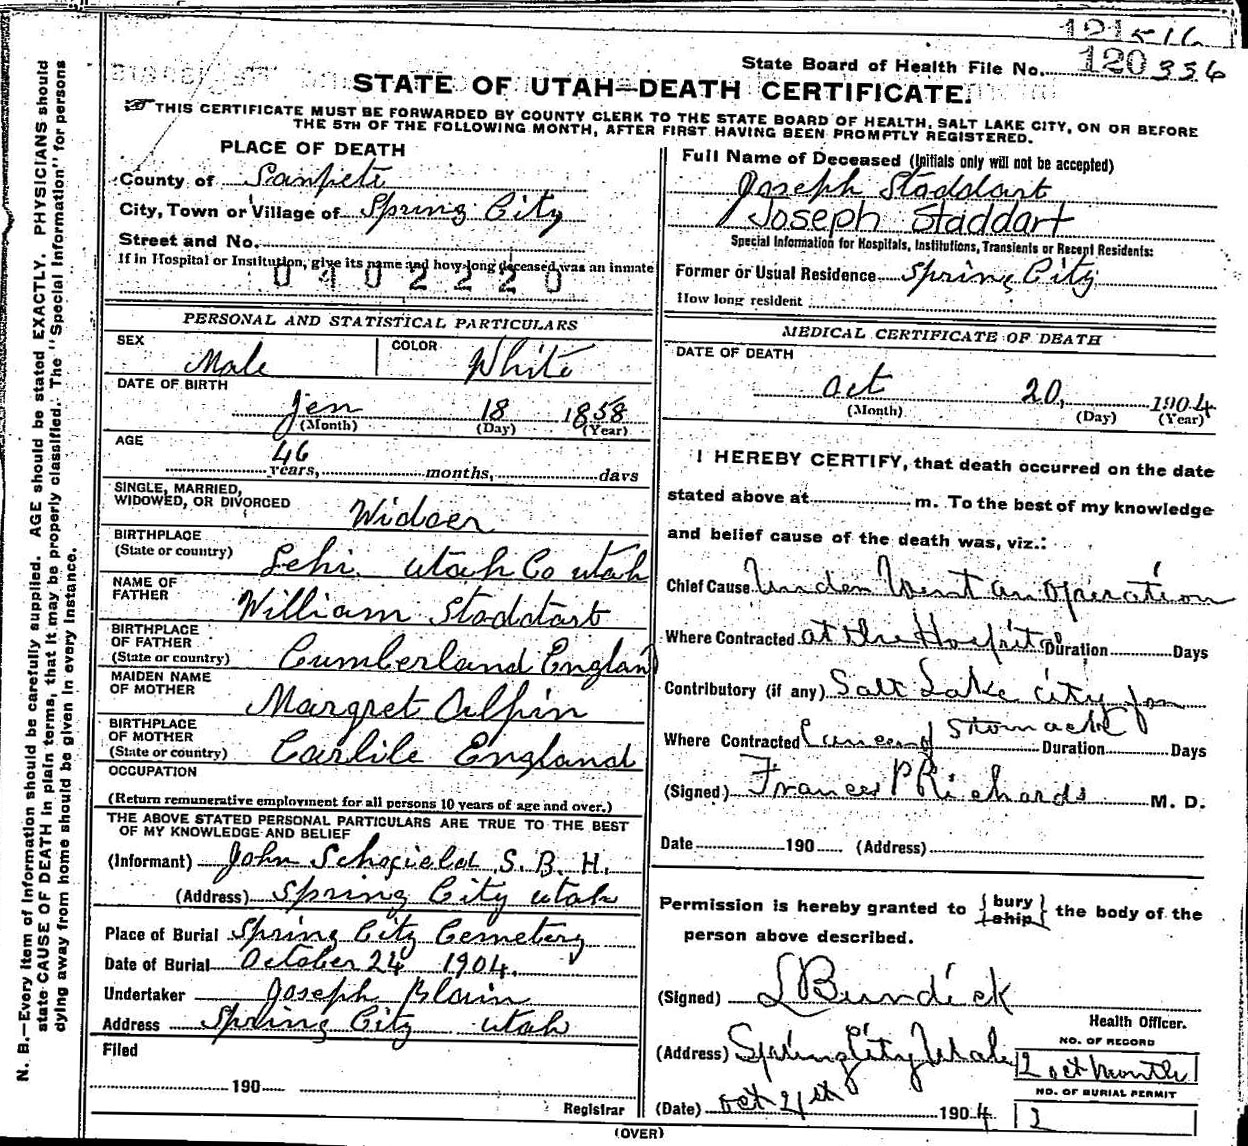 121516
State Board of Health File No. 120336
STATE OF UTAH—DEATH CERTIFICATE.
THIS CERTIFICATE MUST BE FORWARDED BY COUNTY CLERK TO THE STATE BOARD OF HEALTH, SALT LAKE CITY, ON OR BEFORE
THE 5TH OF THE FOLLOWING MONTH, AFTER FIRST HAVING BEEN PROMPTLY REGISTERED.
N. B.—Every item of Information should be carefully supplied. AGE should be stated EXACTLY. PHYSICIANS should
state CAUSE OF DEATH in plain terms, that it may be properly classified. The "Special Information" for persons
dying away from home should be given in every instance.
PLACE OF DEATH
County of Sanpete
City, Town or Village of Spring City
Street and No.
If in Hospital or Institution, give its name and how long deceased was an inmate
0402220
PERSONAL AND STATISTICAL PARTICULARS
SEX Male COLOR White
DATE OF BIRTH
Jen 18 1858
(Month) (Day) (Year)
AGE
46 years, months, days
SINGLE, MARRIED,
WIDOWED, OR DIVORCED Widoer
BIRTHPLACE
(State or country) Lehi Utah Co Utah
NAME OF
FATHER William Stoddart
BIRTHPLACE
OF FATHER
(State or country) Cumberland England
MAIDEN NAME
OF MOTHER Margret Alpin
BIRTHPLACE
OF MOTHER
(State or country) Carlile England
OCCUPATION
(Return remunerative employment for all persons 10 years of age and over.)
THE ABOVE STATED PERSONAL PARTICULARS ARE TRUE TO THE BEST
OF MY KNOWLEDGE AND BELIEF
(Informant) John Schofield S. B. H.
(Address) Spring City Utah
Place of Burial Spring City Cemetery
Date of Burial October 24 1904.
Undertaker Joseph Blain
Address Spring City Utah
Filed
190
Registrar
Full Name of Deceased (Initials only will not be accepted)
Joseph Stoddart
Joseph Staddart
Special Information for Hospitals, Institutions, Transients or Recent Residents:
Former or Usual Residence Spring City
How long resident
MEDICAL CERTIFICATE OF DEATH
DATE OF DEATH
Oct 20, 1904
(Month) (Day) (Year)
I HEREBY CERTIFY, that death occurred on the date
stated above at m. To the best of my knowledge
and belief cause of the death was, viz.:
Chief Cause Under Went an operation
Where Contracted at the Hospital Duration Days
Contributory (if any) Salt Lake City for
Where Contracted Stomach Duration Days
(Signed) Frances P Richards M. D.
Date 190 (Address)
Permission is hereby granted to { bury ship } the body of the
person above described.
(Signed) L Burdick
Health Officer.
(Address) Spring City Utah
NO. OF RECORD
2 oct Month
NO. OF BURIAL PERMIT
12
(Date) Oct 21st 1904
(OVER)